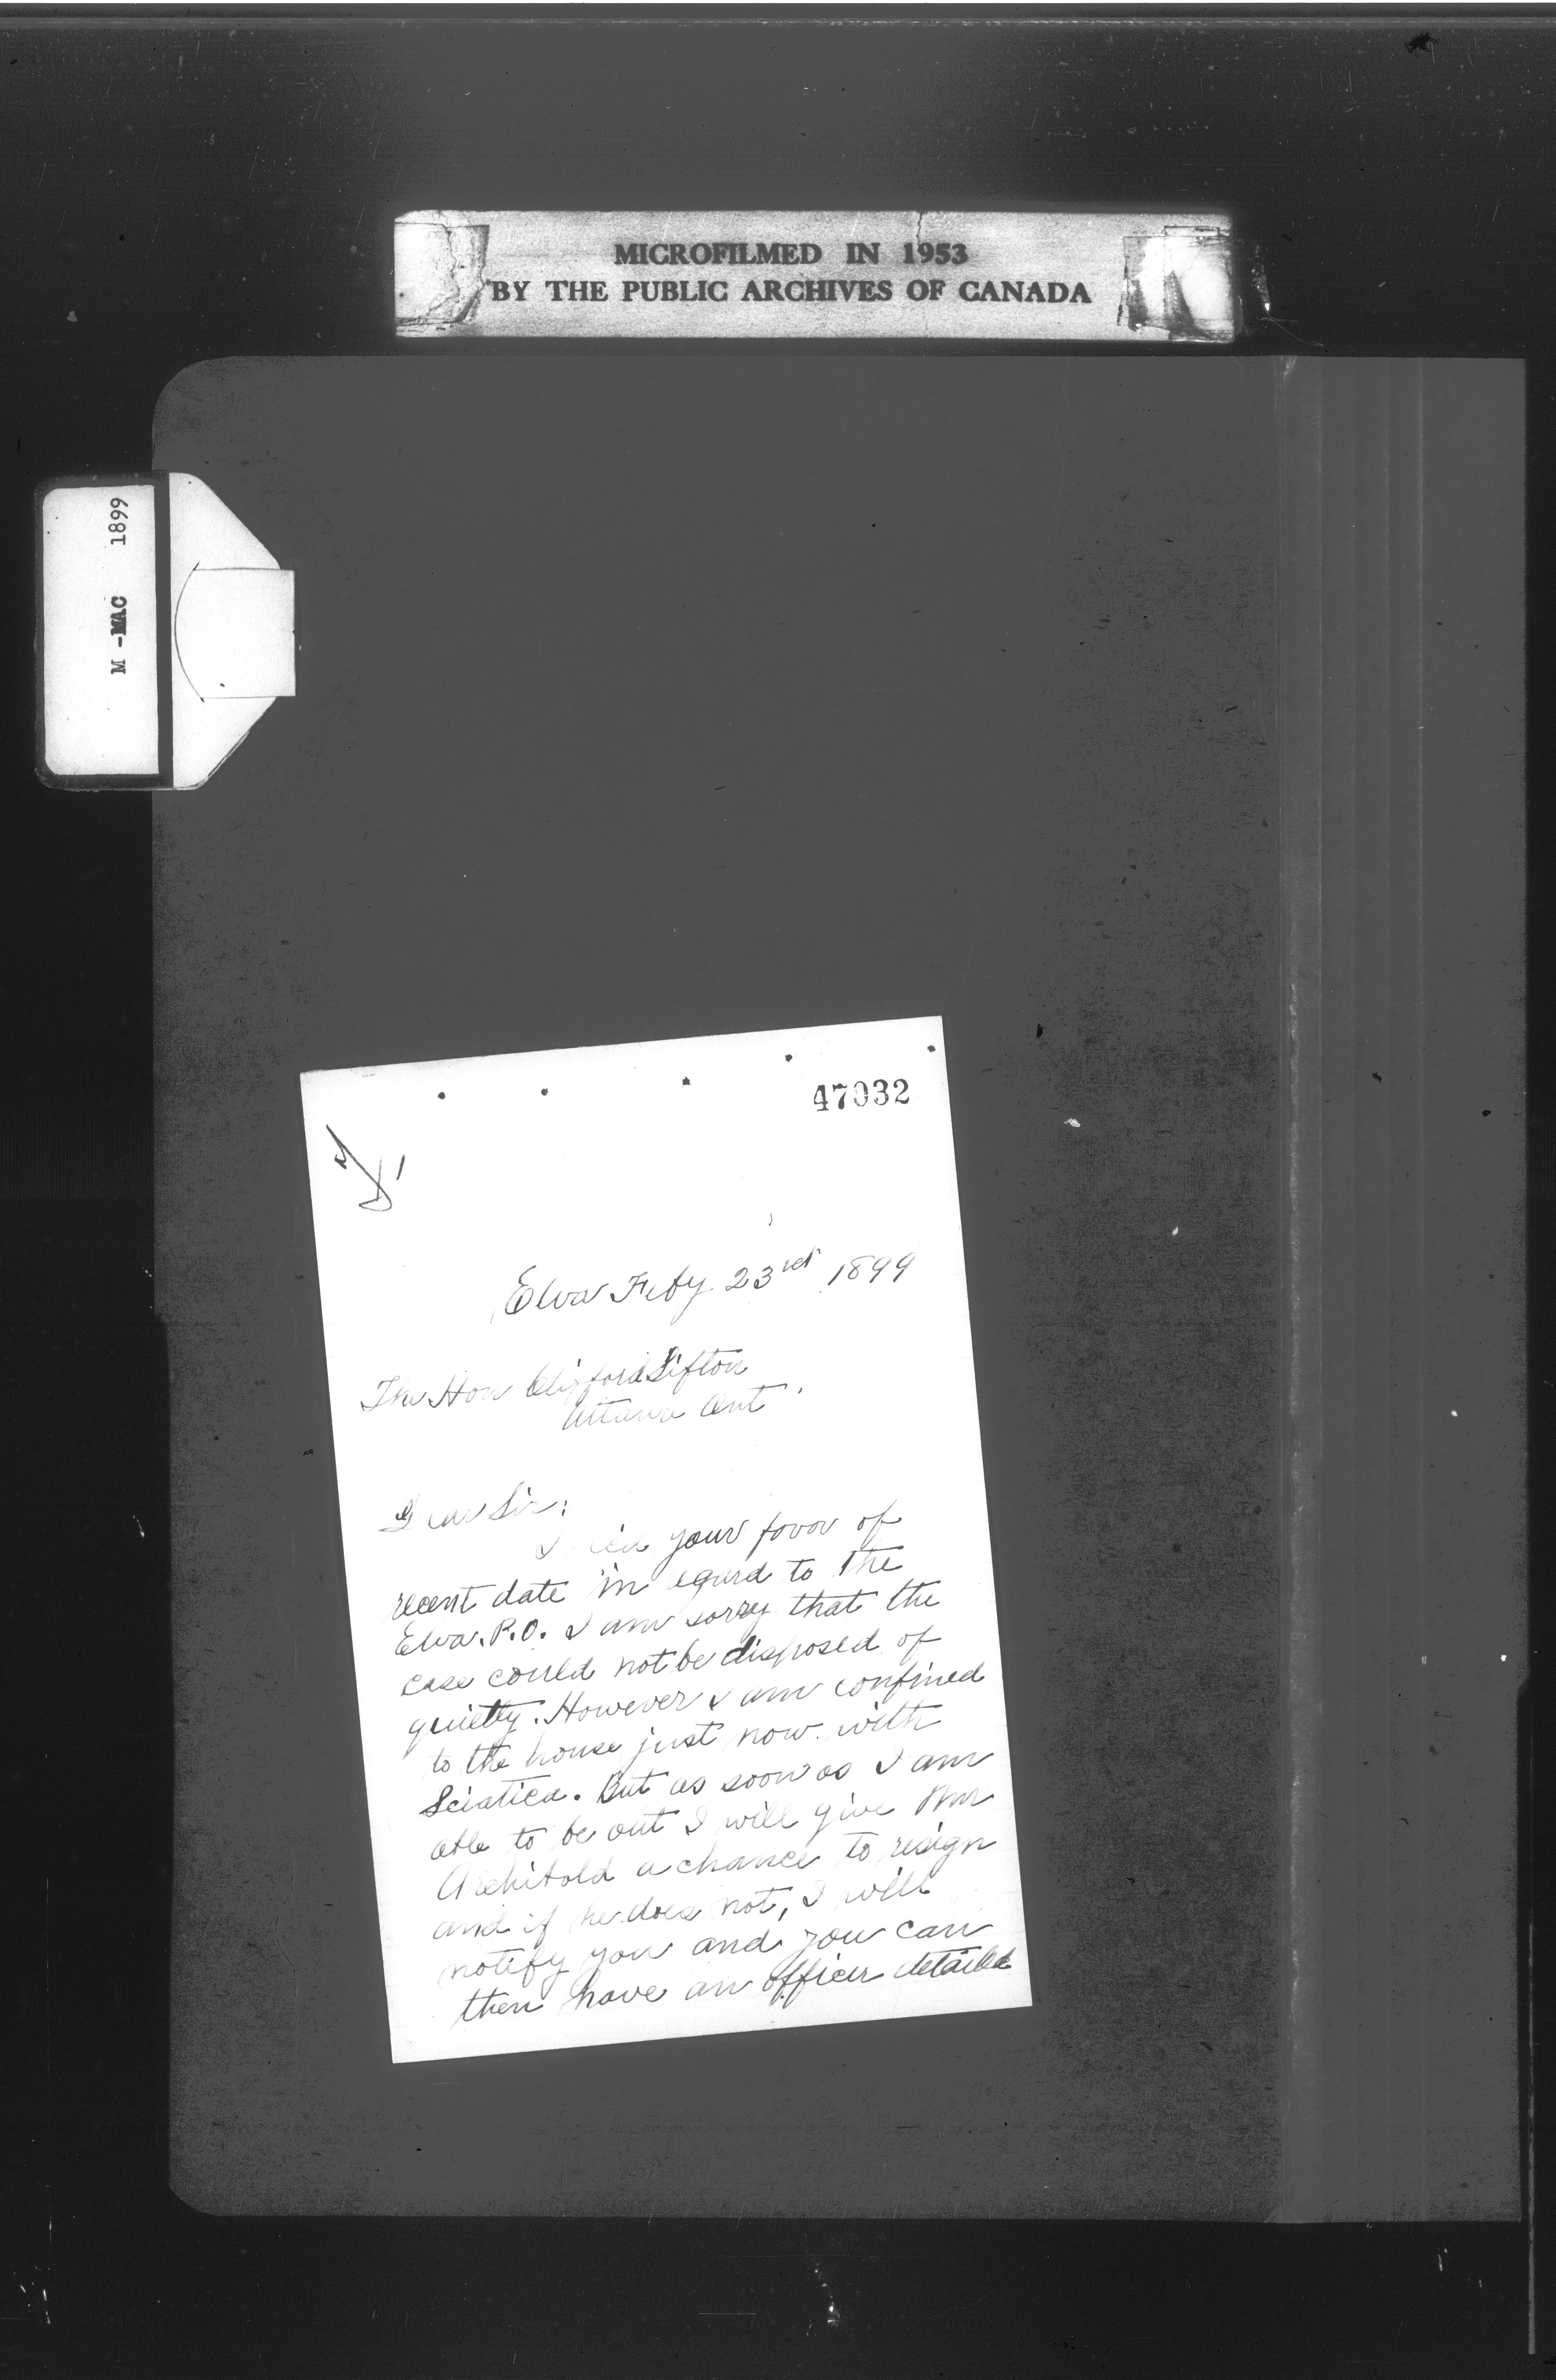 MICROFILMED IN 1953
BY THE PUBLIC ARCHIVES OF CANADA
M-MAC 1899
47032
Elva Feby 23rd 1899
The Hon Clifford Sifton
Ottawa Ont
Dear Sir:
I your favor of
recent date in egard to the
Elva. P.O. I am sorry that the
case could not be disposed of
quietly. However I am confined
to the house just now with
Sciatica. But as soon as I am
able to be out I will give Mr
Archibold a chance to resign
and if he does not, I will
notify you and you can
then have an officer detailed